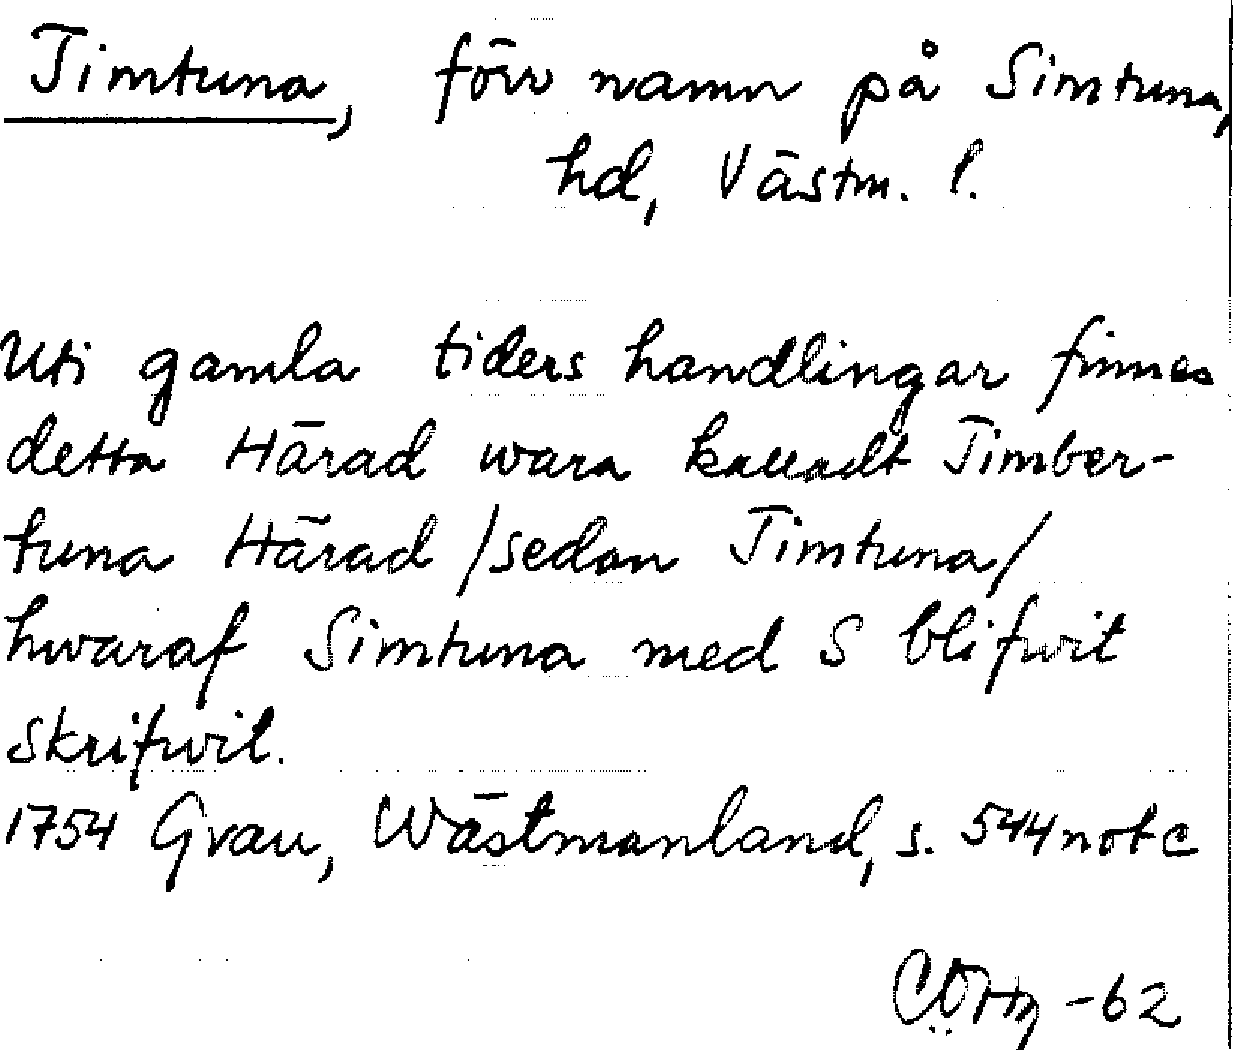 Timtuna, förr namn på Simtuna,
hd, Västm. l.
Uti gamla tiders handlingar finnes
detta Härad wara kalladt Timber-
tuna Härad /sedan Timtuna/
hwaraf Simtuna med S blifwit
skrifwit.
1754 Grau, Wästmanland, s. 544 not c
-62